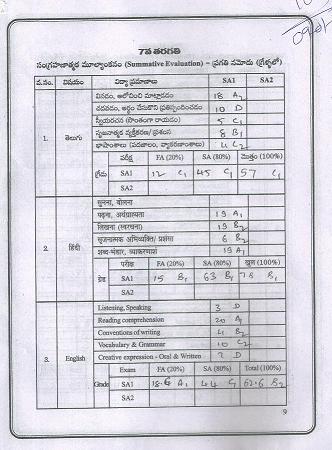 7వ తరగతి
సంగ్రహణాత్మక మూల్యాంకనం (Summative Evaluation) – ప్రగతి నమోదు (గ్రేడ్లలో)
వ.సం. విషయం విద్యా ప్రమాణాలు SA1 SA2
వినడం, ఆలోచించి మాట్లాడడం 18 A2
చదవడం, అర్థం చేసుకొని ప్రతిస్పందించడం 10 D
స్వీయరచన (సొంతంగా రాయడం) 5 C1
1. తెలుగు సృజనాత్మక వ్యక్తీకరణ/ ప్రశంస 8 B1
భాషాంశాలు (పదజాలం, వ్యాకరణాంశాలు) 4 C2
పరీక్ష FA (20%) SA (80%) మొత్తం (100%)
గ్రేడు SA1 12 C1 45 C1 57 C1
SA2
सुनना, बोलना
पढ़ना, अर्थग्राह्यता 19 A1
लिखना (स्वरचना) 19 B2
2. हिंदी सृजनात्मक अभिव्यक्ति/ प्रशंसा 6 B2
शब्द-भंडार, व्याकरणांश 19 A1
परीक्षा FA (20%) SA (80%) कुल (100%)
ग्रेड SA1 15 B1 63 B1 78 B1
SA2
Listening, Speaking 3 D
Reading comprehension 20 A1
Conventions of writing 4 B2
3. English Vocabulary & Grammar 10 C2
Creative expression - Oral & Written 7 D
Exam FA (20%) SA (80%) Total (100%)
Grade SA1 18.6 A1 44 C1 62.6 B2
SA2
9